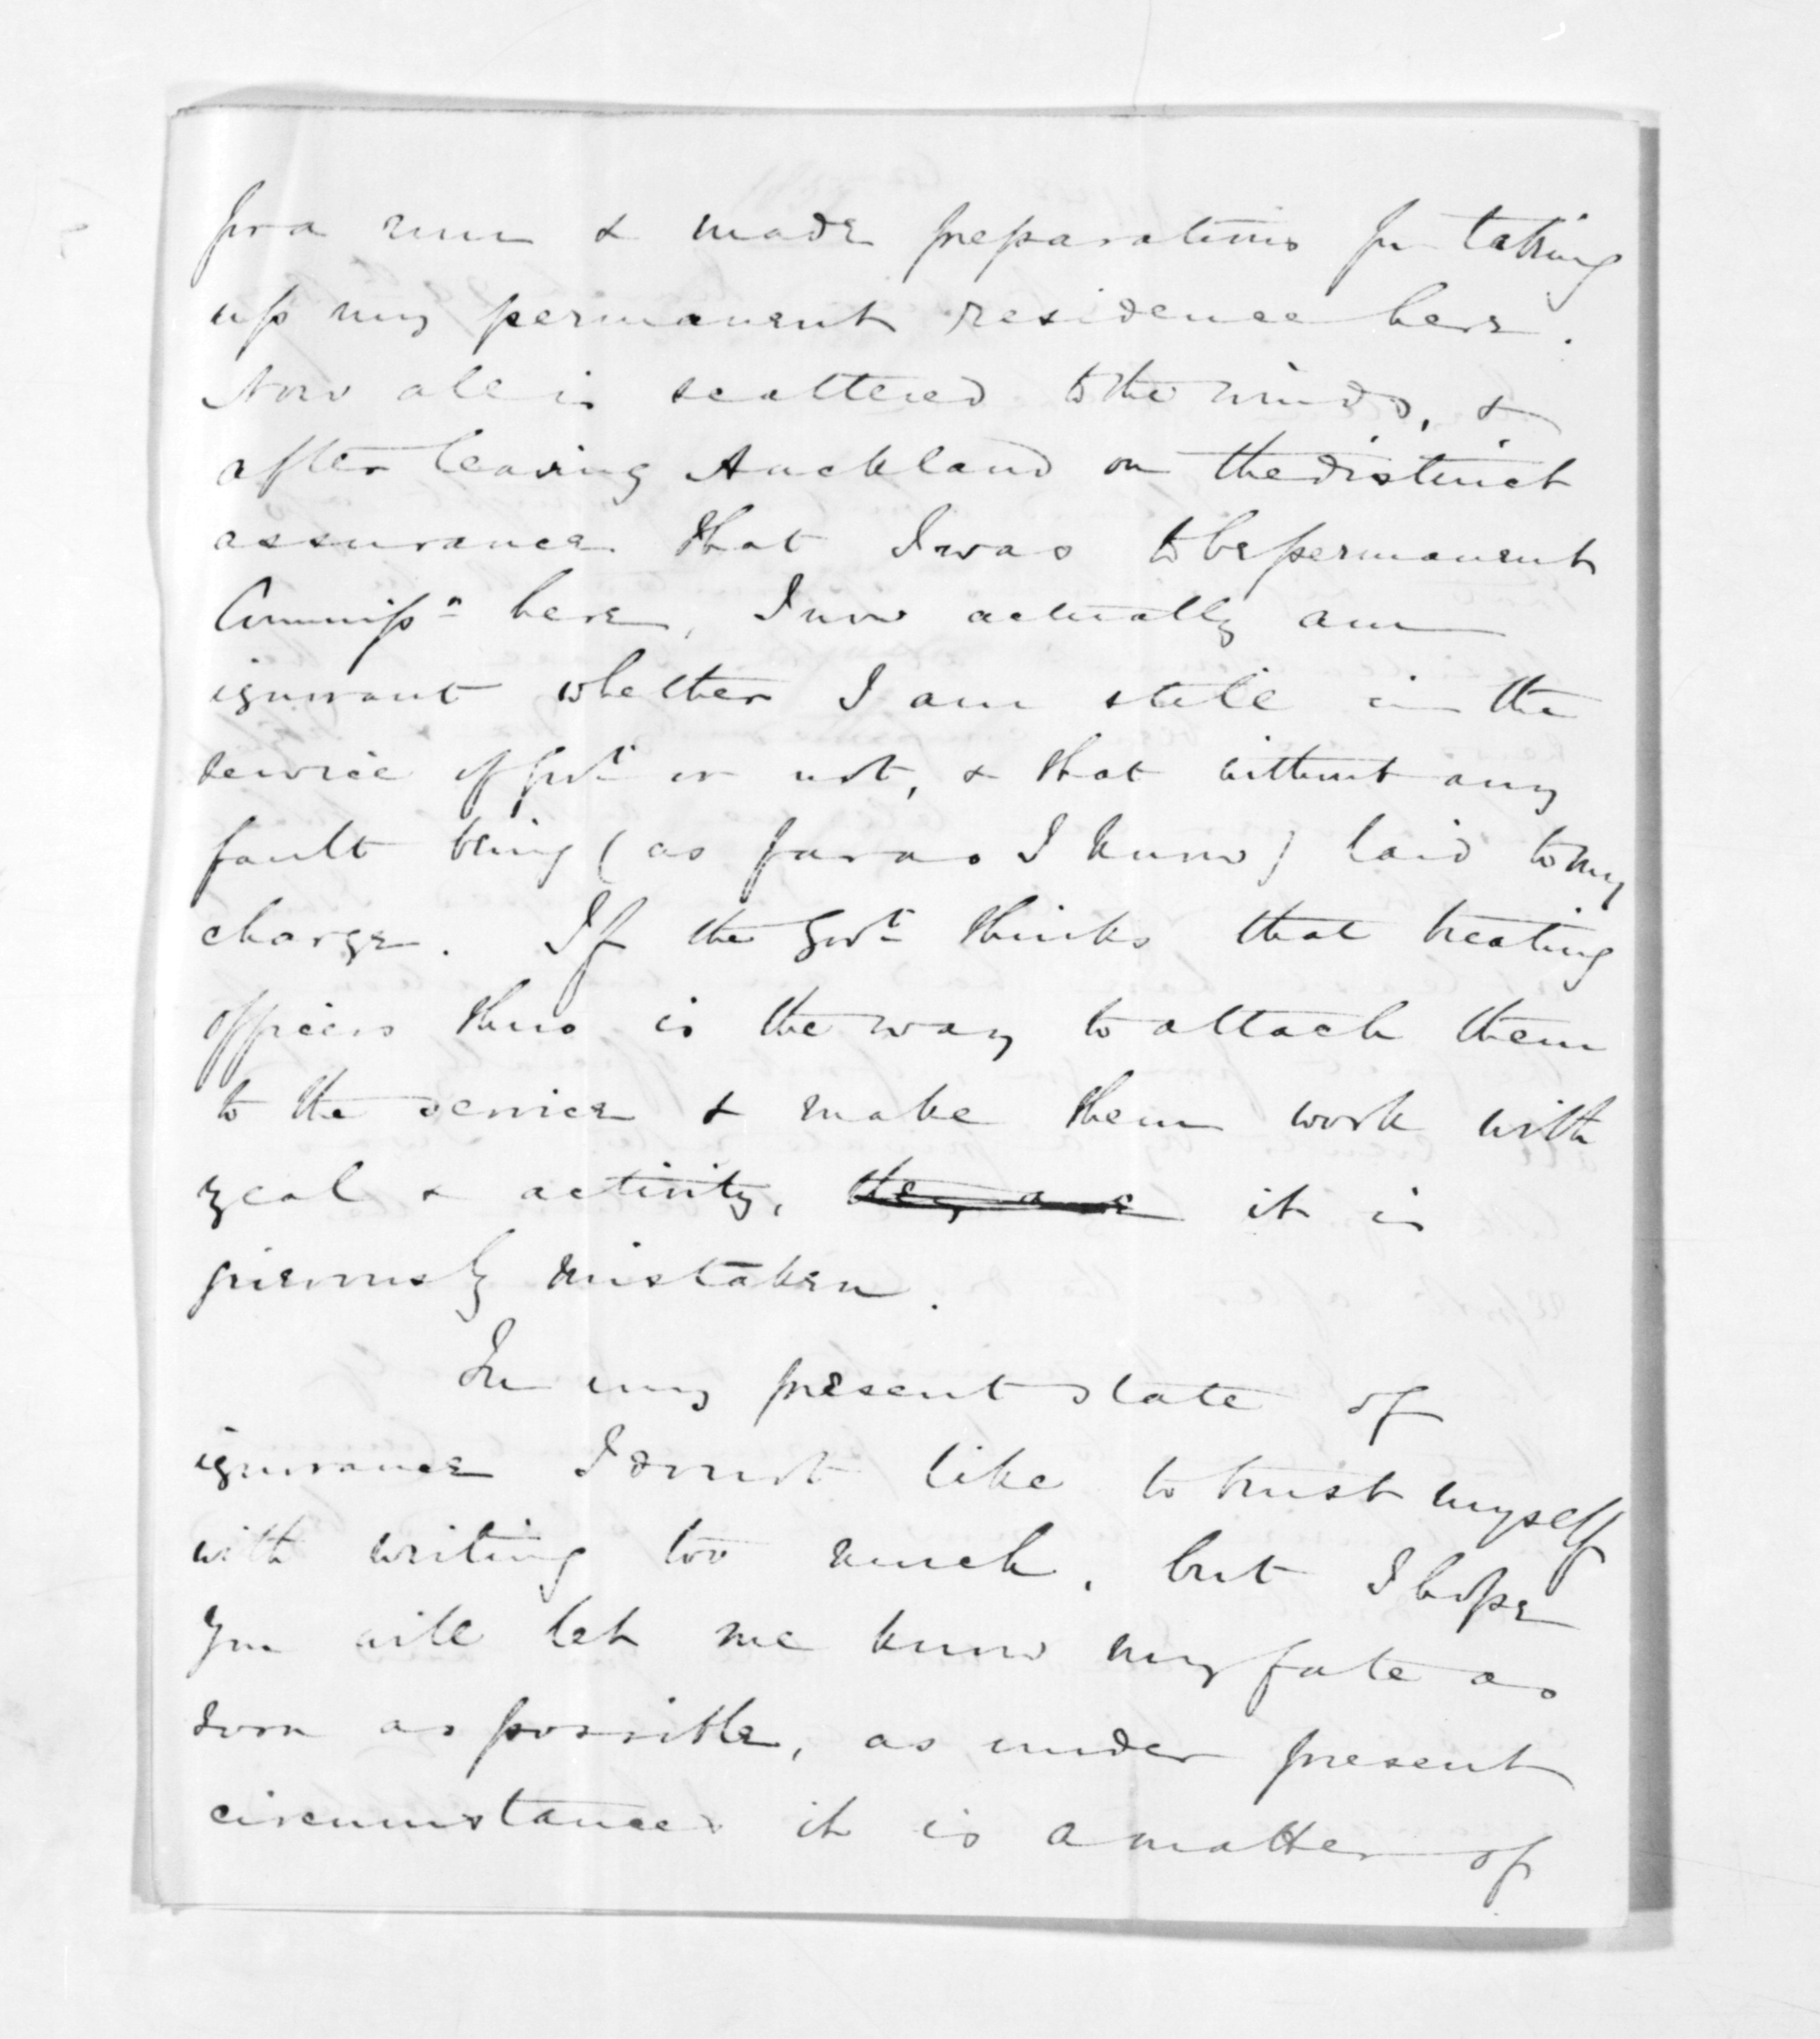 for a run & made preparations for taking
up my permanent residence here.
Now all is scattered to the winds, &
after leaving Auckland on the distinct
assurance that I was to be permanent
Commissn here, I now actually am
ignorant whether I am still in the
service of Govt or not, & that without any
fault being (as far as I know) laid to my
charge. If the Govt thinks that treating
officers thus is the way to attach them
to the service & make them work with
zeal & activity, they are it is
grievously mistaken.
In my present state of
ignorance I do not like to trust myself
with writing too much, but I hope
you will let me know my fate as
soon as possible, as under present
circumstances it is a matter of